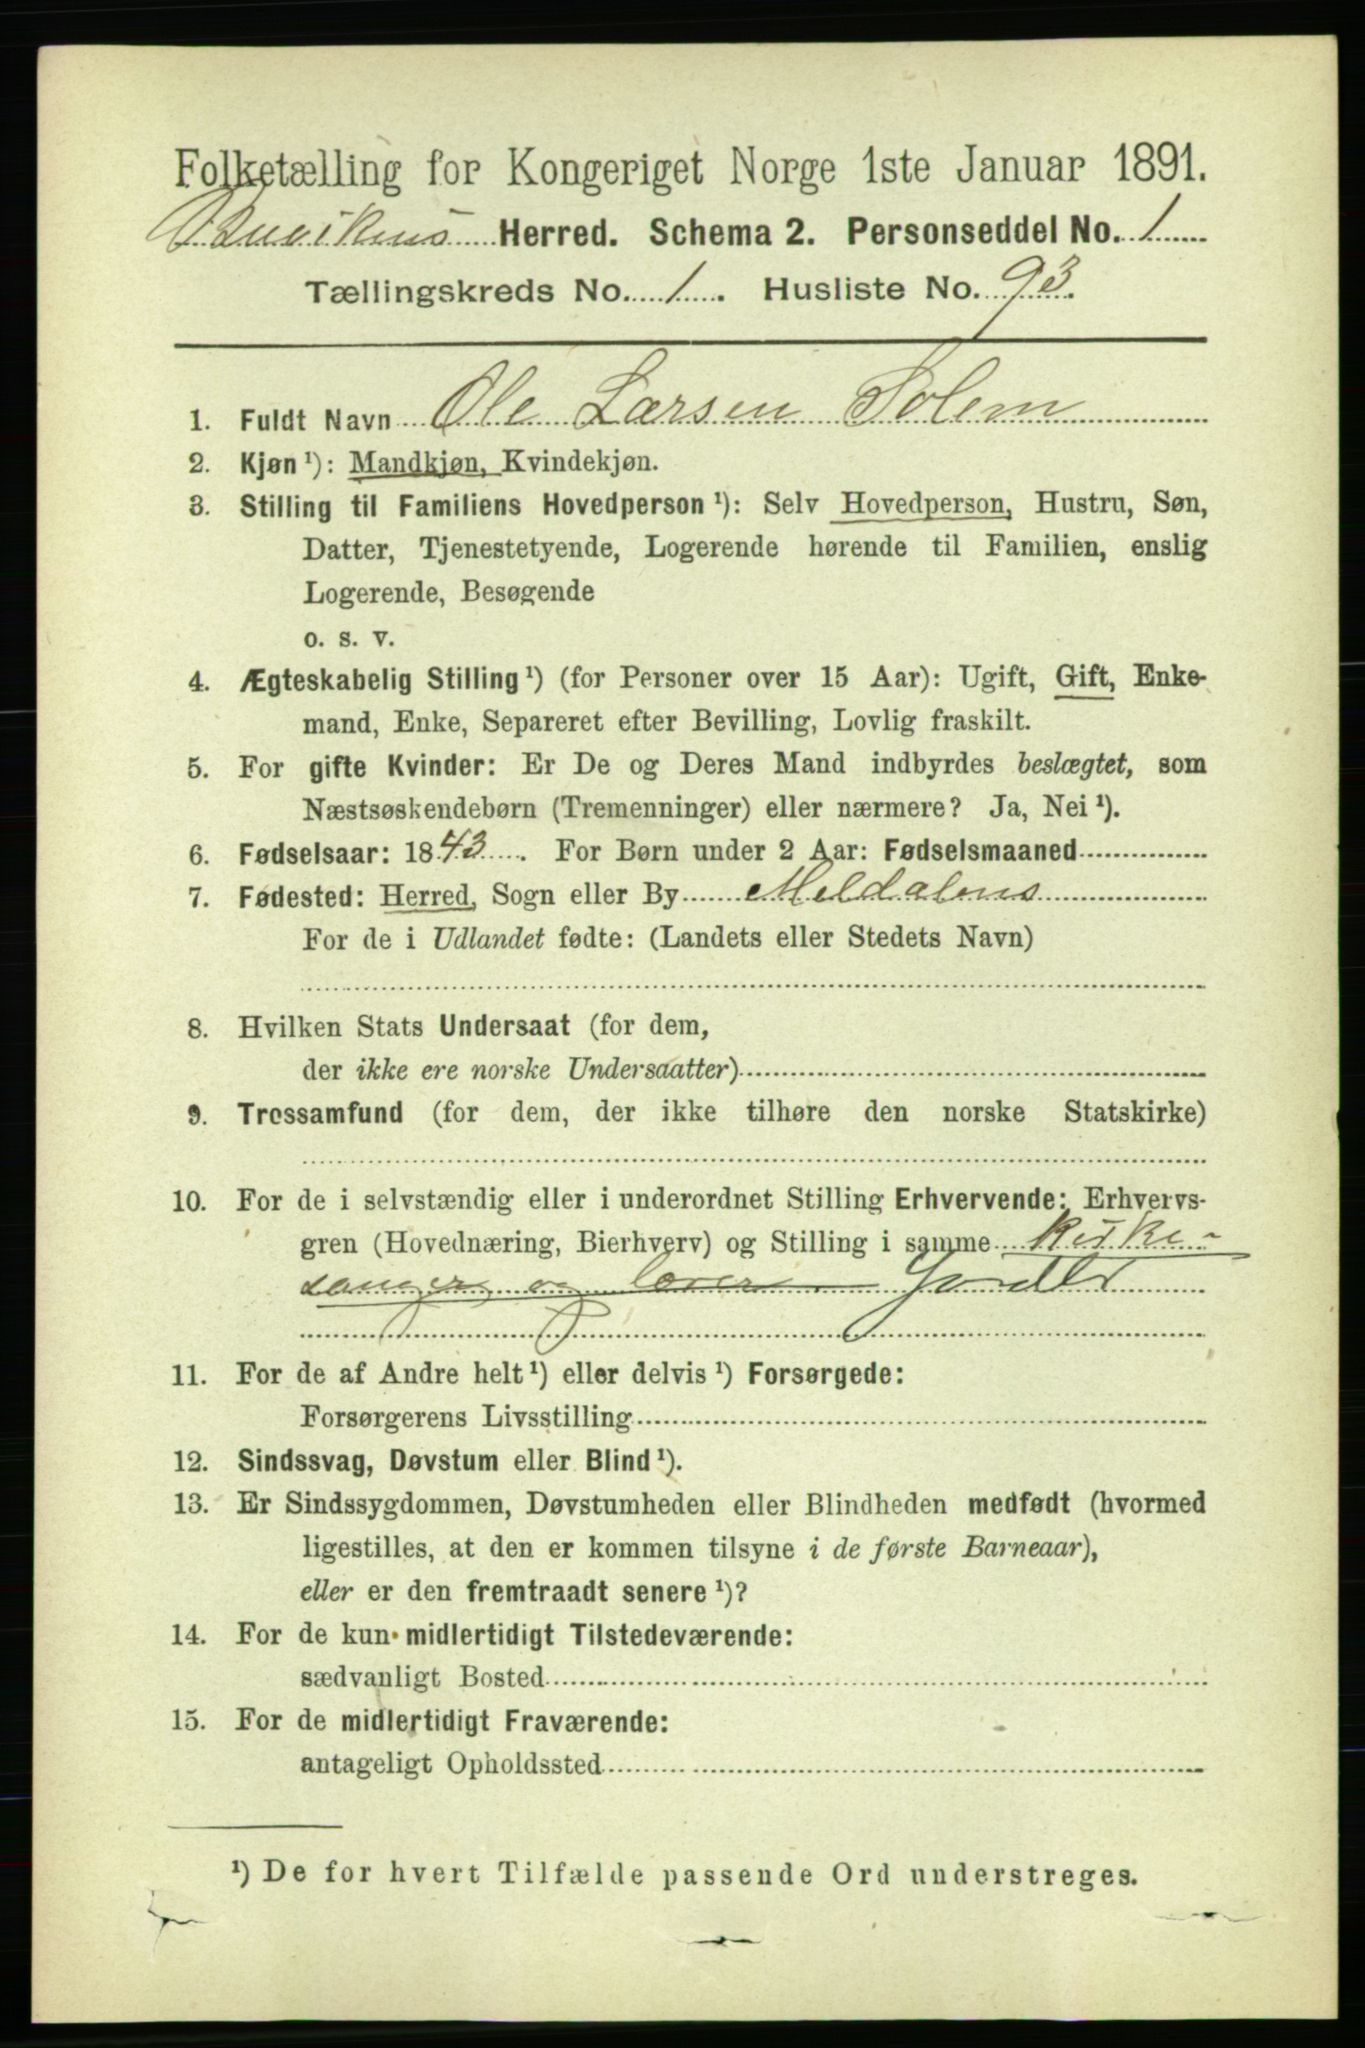 Folketælling for Kongeriget Norge 1ste Januar 1891.
Buvikens Herred. Schema 2. Personseddel No. 1
Tællingskreds No. 1. Husliste No. 93.
1. Fuldt Navn Ole Larsen Solem
2. Kjøn ¹): Mandkjøn, Kvindekjøn.
3. Stilling til Familiens Hovedperson ¹): Selv Hovedperson, Hustru, Søn,
Datter, Tjenestetyende, Logerende hørende til Familien, enslig
Logerende, Besøgende
o. s. v.
4. Ægteskabelig Stilling ¹) (for Personer over 15 Aar): Ugift, Gift, Enke-
mand, Enke, Separeret efter Bevilling, Lovlig fraskilt.
5. For gifte Kvinder: Er De og Deres Mand indbyrdes beslægtet, som
Næstsøskendebørn (Tremenninger) eller nærmere? Ja, Nei ¹).
6. Fødselsaar: 1843. For Børn under 2 Aar: Fødselsmaaned
7. Fødested: Herred, Sogn eller By Meldalens
For de i Udlandet fødte: (Landets eller Stedets Navn)
8. Hvilken Stats Undersaat (for dem,
der ikke ere norske Undersaatter)
9. Trossamfund (for dem, der ikke tilhøre den norske Statskirke)
10. For de i selvstændig eller i underordnet Stilling Erhvervende: Erhvervs-
gren (Hovednæring, Bierhverv) og Stilling i samme Kirke-
sanger og lærer
11. For de af Andre helt ¹) eller delvis ¹) Forsørgede:
Forsørgerens Livsstilling
12. Sindssvag, Døvstum eller Blind ¹).
13. Er Sindssygdommen, Døvstumheden eller Blindheden medfødt (hvormed
ligestilles, at den er kommen tilsyne i de første Barneaar),
eller er den fremtraadt senere ¹)?
14. For de kun midlertidigt Tilstedeværende:
sædvanligt Bosted
15. For de midlertidigt Fraværende:
antageligt Opholdssted
¹) De for hvert Tilfælde passende Ord understreges.